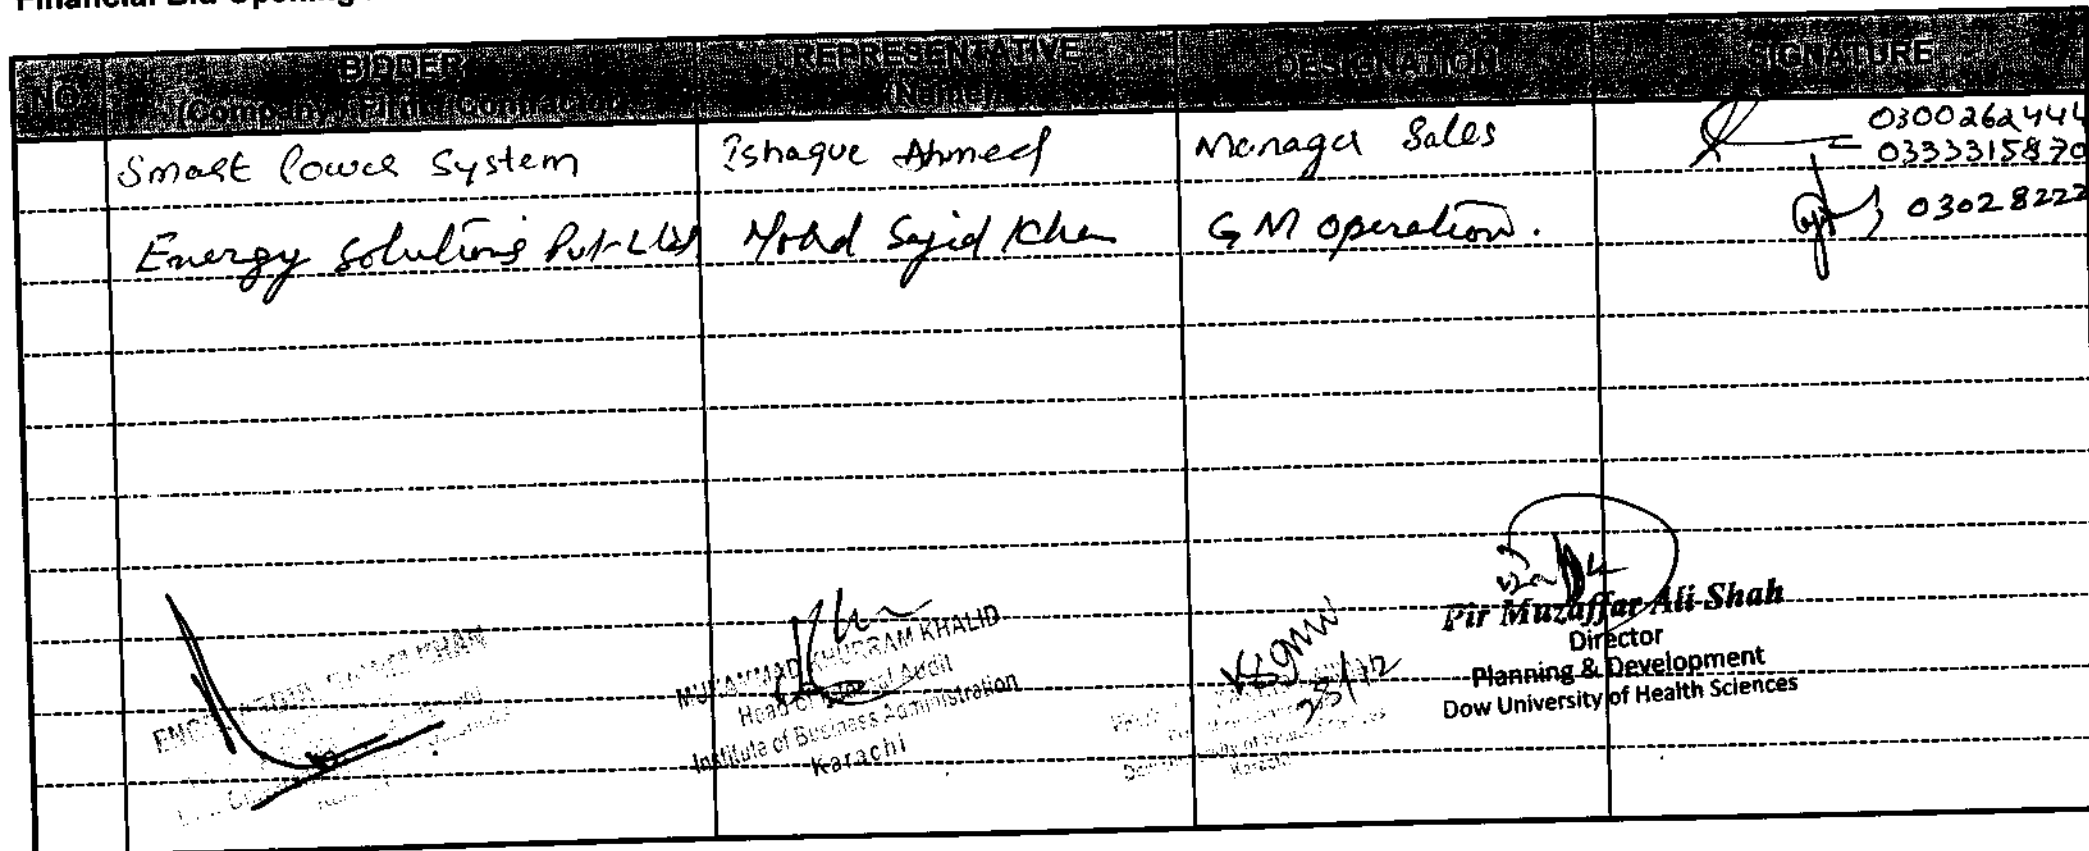 Financial Bid Opening
NO. BIDDER (Company / Firm / Contractor) REPRESENTATIVE (Name) DESIGNATION SIGNATURE
Smart Power System Ishaque Ahmed Manager Sales 0300262444
0333315870
Energy Solutions Pvt Ltd Mohd Sajid Khan G M Operation. 03028222
KHAN
MUHAMMAD KHURRAM KHALID
Head of Internal Audit
Institute of Business Administration
Karachi
28/12
University of Health Sciences
Karachi
Pir Muzaffar Ali Shah
Director
Planning & Development
Dow University of Health Sciences